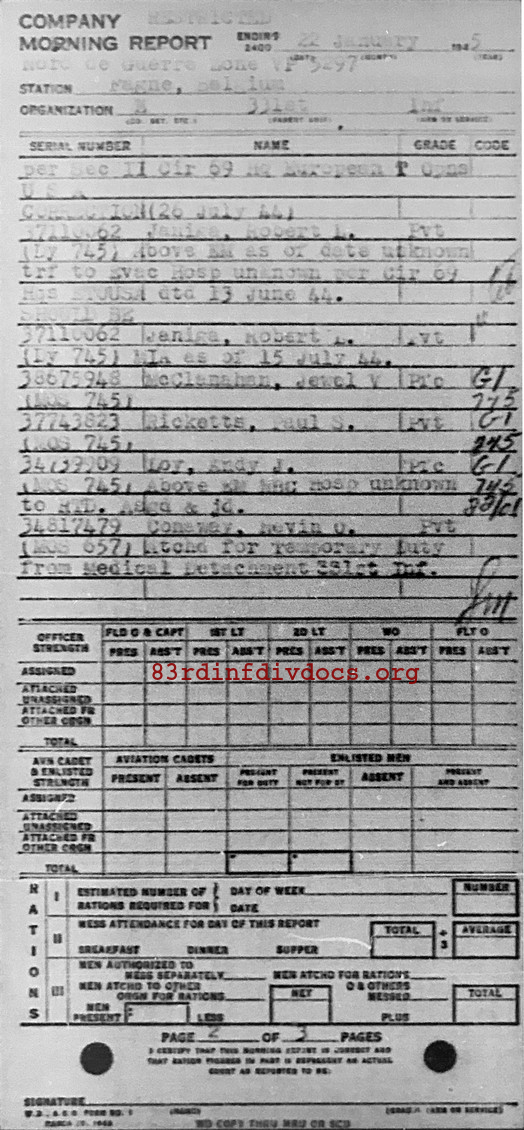 COMPANY RESTRICTED
MORNING REPORT ENDING 2400 22 January 1945
Nord de Guerre Zone VP 5297
STATION Fagne, Belgium
ORGANIZATION M 331st Inf
SERIAL NUMBER NAME GRADE CODE
per Sec II Cir 69 Hq European T Opns
U S A
CORRECTION(26 July 44)
37110062 Janiga, Robert L. Pvt
(Ly 745) Above EM as of date unknown
trf to Evac Hosp unknown per Cir 69
Hqs ETOUSA dtd 13 June 44.
SHOULD BE
37110062 Janiga, Robert L. Pvt
(Ly 745) MIA as of 15 July 44.
38675948 McClanahan, Jewel V Pfc GI
(MOS 745) 745
37743823 Ricketts, Paul S. Pvt GI
(MOS 745) 745
34739909 Loy, Andy J. Pfc GI
(MOS 745) Above EM MBC Hosp unknown 745
to RTD. Asgd & jd.
34817479 Conaway, Nevin O. Pvt
(MOS 657) Atchd for Temporary Duty
from Medical Detachment 331st Inf.
OFFICER STRENGTH FLD O & CAPT 1ST LT 2D LT WO FLT O
PRES ABS'T PRES ABS'T PRES ABS'T PRES ABS'T PRES ABS'T
83rdinfdivdocs.org
ASSIGNED
ATTACHED UNASSIGNED
ATTACHED FR OTHER ORGN
TOTAL
AVN CADET & ENLISTED STRENGTH AVIATION CADETS ENLISTED MEN
PRESENT ABSENT PRESENT FOR DUTY PRESENT NOT FOR DY ABSENT PRESENT AND ABSENT
ASSIGNED
ATTACHED UNASSIGNED
ATTACHED FR OTHER ORGN
TOTAL
RATIONS
I ESTIMATED NUMBER OF RATIONS REQUIRED FOR DAY OF WEEK DATE NUMBER
II MESS ATTENDANCE FOR DAY OF THIS REPORT TOTAL ÷ 3 AVERAGE
BREAKFAST DINNER SUPPER
III MEN AUTHORIZED TO MESS SEPARATELY MEN ATCHD FOR RATIONS
MEN ATCHD TO OTHER ORGN FOR RATIONS NET O & OTHERS MESSED TOTAL
MEN PRESENT LESS PLUS
PAGE 2 OF 3 PAGES
I CERTIFY THAT THIS MORNING REPORT IS CORRECT AND
THAT RATION FIGURES IN PART III REPRESENT AN ACTUAL
COUNT AS REPORTED TO ME:
SIGNATURE
W.D., A.G.O. FORM NO. 1 (NAME) (GRADE) (ARM OR SERVICE)
NO COPY THRU MRU OR SCU